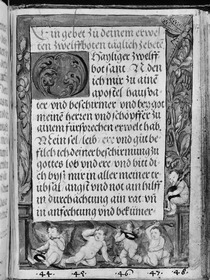 Ein gebet zu deinem erwel
ten zwelffboten täglich zebete
O Hayliger zwelff
bot sant N den
ich mir zu aine
apostel hausva
ter vnd beschirmer vnd bey got
meine herren vnd schöpffer zu
ainem fürsprechen erwelt hab.
Mein sel, leib, ere vnd gůt be
filch ich deiner beschirmung zů
gottes lob vnd ere vnd bit dich
byß mir in aller meiner tre
ubsal angst vnd not ain hilff
in durchachtung ain rat vn
in anfechtung vnd bekümer
44. 45. 46. 47. 48.